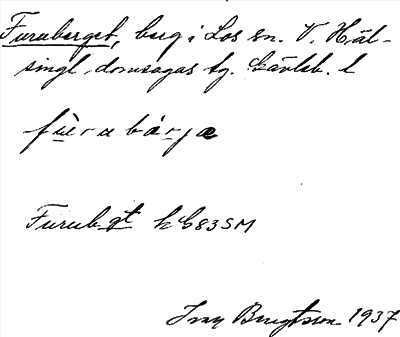 Furuberget, berg i Los sn. V. Häl-
singl. domsagas tg. Gävleb. l
fu̱ra bá̱rjæ
Furub gt k G83SM
Ivar Bengtsson 1937